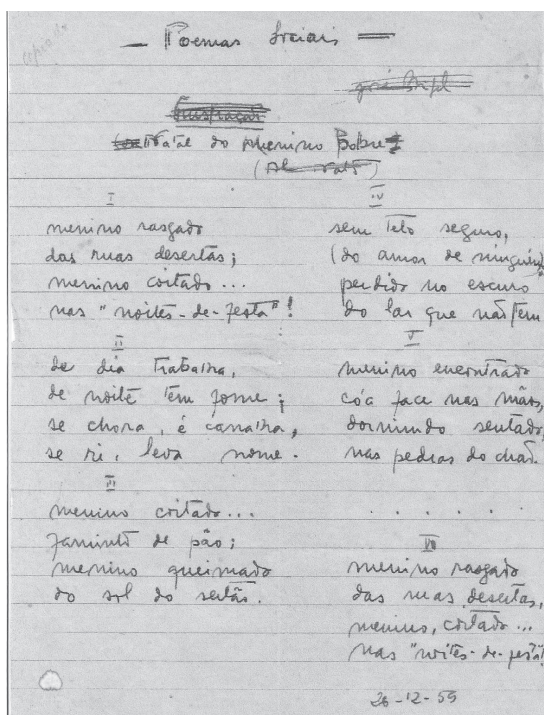 cópia do
— Poemas Sociais —
Frustração
Natal do Menino Pobre
I
menino rasgado
das ruas desertas;
menino coitado...
nas "noites-de-festa"!
II
de dia trabalha,
de noite tem fome;
se chora, é canalha,
se ri, leva nome.
III
menino coitado...
faminto de pão;
menino queimado
do sol do sertão.
IV
sem teto seguro,
(do amor de ninguém)
perdido no escuro
do lar que não tem
V
menino encontrado
có'a face nas mãos,
dormindo sentado,
nas pedras do chão.
. . . . . .
VI
menino rasgado
das ruas desertas,
menino, coitado...
nas "noites-de-festa"!
26-12-55